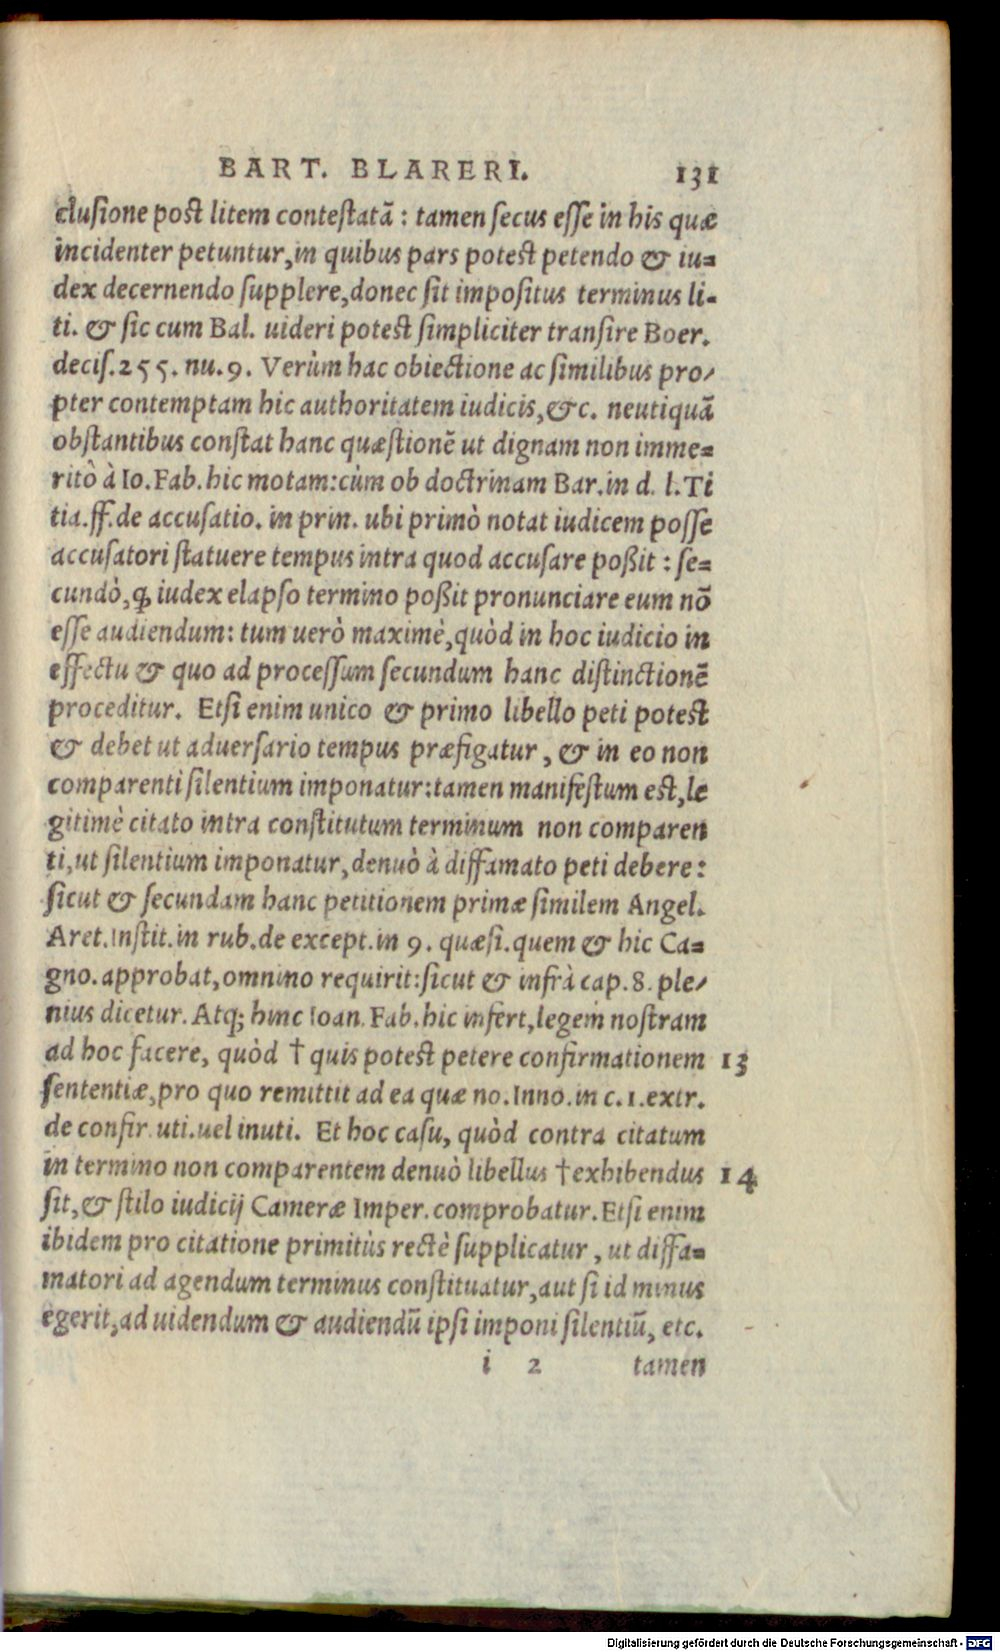 BART. BLARERI. 131
clusione post litem contestatā : tamen secus esse in his quæ
incidenter petuntur, in quibus pars potest petendo & iu=
dex decernendo supplere, donec sit impositus terminus li=
ti. & sic cum Bal. uideri potest simpliciter transire Boer.
decis. 255. nu. 9. Verùm hac obiectione ac similibus pro/
pter contemptam hic authoritatem iudicis, &c. neutiquā
obstantibus constat hanc quæstionē ut dignam non imme=
ritò à Io. Fab. hic motam: cùm ob doctrinam Bar. in d. l. Ti
tia. ff. de accusatio. in prin. ubi primò notat iudicem posse
accusatori statuere tempus intra quod accusare poßit : se=
cundò, ꝙ iudex elapso termino poßit pronunciare eum nō
esse audiendum: tum uerò maximè, quòd in hoc iudicio in
effectu & quo ad processum secundum hanc distinctionē
proceditur. Etsi enim unico & primo libello peti potest
& debet ut aduersario tempus præfigatur, & in eo non
comparenti silentium imponatur: tamen manifestum est, le
gitimè citato intra constitutum terminum non comparen
ti, ut silentium imponatur, denuò à diffamato peti debere:
sicut & secundam hanc petitionem primæ similem Angel.
Aret. Instit. in rub. de except. in 9. quæsi. quem & hic Ca=
gno. approbat, omnino requirit: sicut & infrà cap. 8. ple/
nius dicetur. Atq; hinc Ioan. Fab. hic infert, legem nostram
ad hoc facere, quòd † quis potest petere confirmationem 13
sententiæ, pro quo remittit ad ea quæ no. Inno. in c. 1. extr.
de confir. uti. uel inuti. Et hoc casu, quòd contra citatum
in termino non comparentem denuò libellus † exhibendus 14
sit, & stilo iudicij Cameræ Imper. comprobatur. Etsi enim
ibidem pro citatione primitùs rectè supplicatur, ut diffa=
matori ad agendum terminus constituatur, aut si id minus
egerit, ad uidendum & audiendū ipsi imponi silentiū, etc.
i 2 tamen
Digitalisierung gefördert durch die Deutsche Forschungsgemeinschaft - DFG